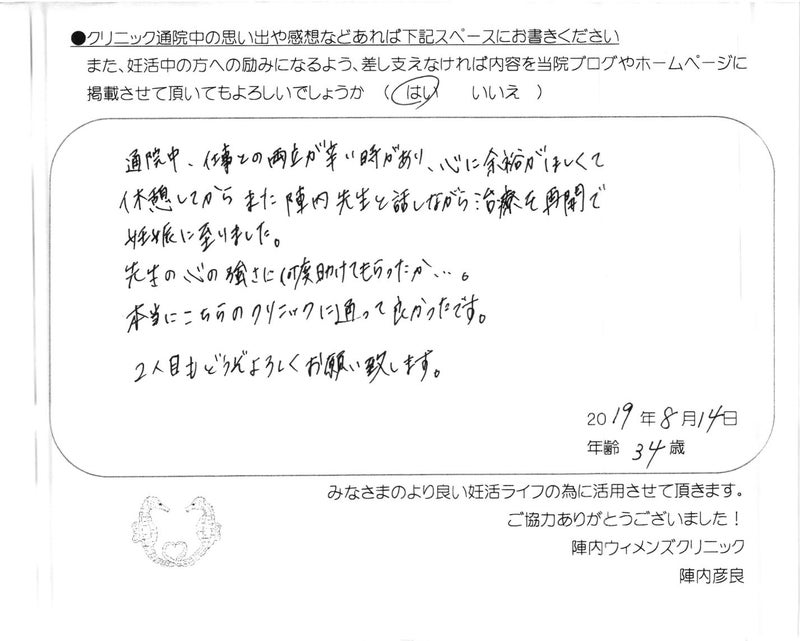 ●クリニック通院中の思い出や感想などあれば下記スペースにお書きください
また、妊活中の方への励みになるよう、差し支えなければ内容を当院ブログやホームページに
掲載させて頂いてもよろしいでしょうか （ はい いいえ ）
通院中、仕事との両立が辛い時があり、心に余裕がほしくて
休憩してから また 陣内先生と話しながら治療を再開で
妊娠に至りました。
先生の心の強さに何度助けてもらったか…。
本当にこちらのクリニックに通って良かったです。
2人目もどうぞよろしくお願い致します。
2019年8月14日
年齢 34歳
みなさまのより良い妊活ライフの為に活用させて頂きます。
ご協力ありがとうございました！
陣内ウィメンズクリニック
陣内彦良